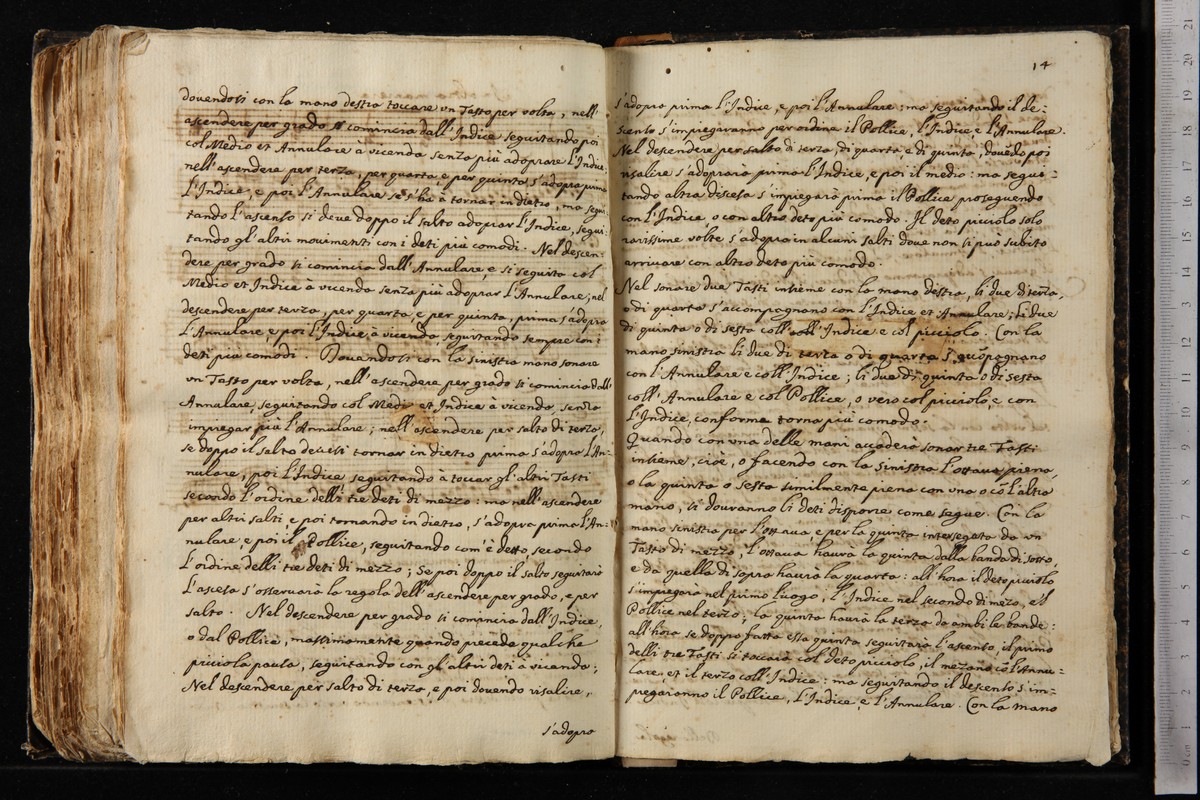 douendosi con la mano destra toccare vn Tasto per volta, nell'
ascendere per grado si comincia dall'Indice seguitando poi
col Medio et Annulare à vicenda senza più adoprare l'Indi:
nell'ascendere per terza, per quarta, e per quinta s'adopra prima
l'Indice, e poi l'Annulare se s'hà à tornar indietro, ma segui:
tando l'ascenso si deue doppo il salto adoprar l'Indice, segui:
tando gl'altri mouimenti con i deti più comodi. Nel descen:
dere per grado si comincia dall'Annulare, e si seguita col
Medio et Indice à vicenda senza più adoprar l'Annulare; nel
descendere per terza, per quarta, e per quinta, prima s'adopra
l'Annulare e poi l'Indice, à vicenda seguitando sempre con i
deti più comodi. Douendosi con la sinistra mano sonare
vn Tasto per volta, nell'ascendere per grado si comincia dall'
Annulare, seguitando col Medio et Indice à vicenda, senza
impiegar più l'Annulare; nell'ascendere per salto di terza,
se doppo il salto deuesi tornar in dietro prima s'adopra l'An:
nulare, poi l'Indice seguitando à toccar gl'altri Tasti
secondo l'ordine delli tre deti di mezzo: ma nell'ascendere
per altri salti, e poi tornando in dietro, s'adopra prima l'An:
nulare, e poi il Pollice, seguitando com'è detto, secondo
l'ordine delli tre deti di mezzo; Se poi doppo il salto seguitarà
l'ascesa s'osseruarà la regola dell'ascendere per grado, e per
salto. Nel descendere per grado si comincia dall'Indice,
o dal Pollice, massimamente quando precede qualche
picciola pausa, seguitando con gl'altri deti à vicenda;
Nel descendere per salto di terza, e poi douendo risalire,
s'adopra
14
s'adopra prima l'Indice, e poi l'Annulare; ma seguitando il de:
scenso s'impiegaranno per ordine il Pollice, l'Indice e l'Annulare.
Nel descendere per salto di terza, di quarta, e di quinta, douendo poi
risalire s'adoprarà prima l'Indice, e poi il medio: ma segui:
tando altra discesa s'impiegarà prima il Pollice proseguendo
con l'Indice o con altro deto più comodo. Il deto picciolo solo
rarissime volte s'adopra in alcuni salti doue non si può subito
arriuare con altro deto più comodo.
Nel sonare due Tasti insieme con la mano destra, li due di terza,
o di quarta s'accompagnano con l'Indice et Annulare; li due
di quinta o di sesta coll' Indice e col picciolo. Con la
mano sinistra li due di terza o di quarta s'accopagnano
con l'Annulare e coll'Indice; li due di quinta o di sesta
coll'Annulare e col Pollice, o vero col picciolo, e con
l'Indice, conforme torna più comodo.
Quando con vna delle mani accaderà sonar tre Tasti
insieme, cioè, o facendo con la sinistra l'ottaua piena,
o la quinta o sesta similmente piena con vna o cõ l'altra
mano, si douranno li deti disporre come segue. Con la
mano sinistra per l'ottaua e per la quinta intersegata da vn
Tasto di mezzo, l'ottaua haurà la quinta dalla banda di sotto,
e da quella di sopra haurà la quarta: all'hora il deto picciolo
s'impiegarà nel primo luogo, l'Indice nel secondo di mezo, e'l
Pollice nel terzo; la quinta haurà la terza da ambi le bande:
all'hora se doppo fatta essa quinta seguitarà l'ascenso, il primo
delli tre Tasti si toccarà col deto picciolo, il mezano cõ l'Annu:
lare, et il terzo coll'Indice: ma seguitando il descenso s'im:
piegaranno il Pollice, l'Indice, e l'Annulare. Con la mano